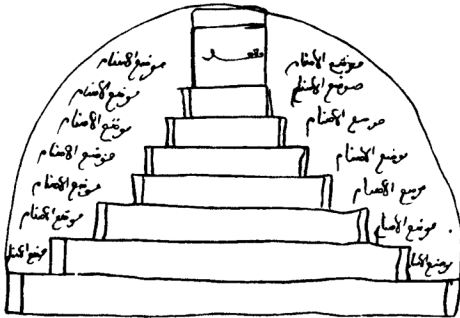 مقعد
موضع الأصنام موضع الأصنام
موضع الأصنام موضع الأصنام
موضع الأصنام موضع الأصنام
موضع الأصنام موضع الأصنام
موضع الأصنام موضع الأصنام
موضع الأصنام موضع الأصنام
موضع الأصنام موضع الأصنام